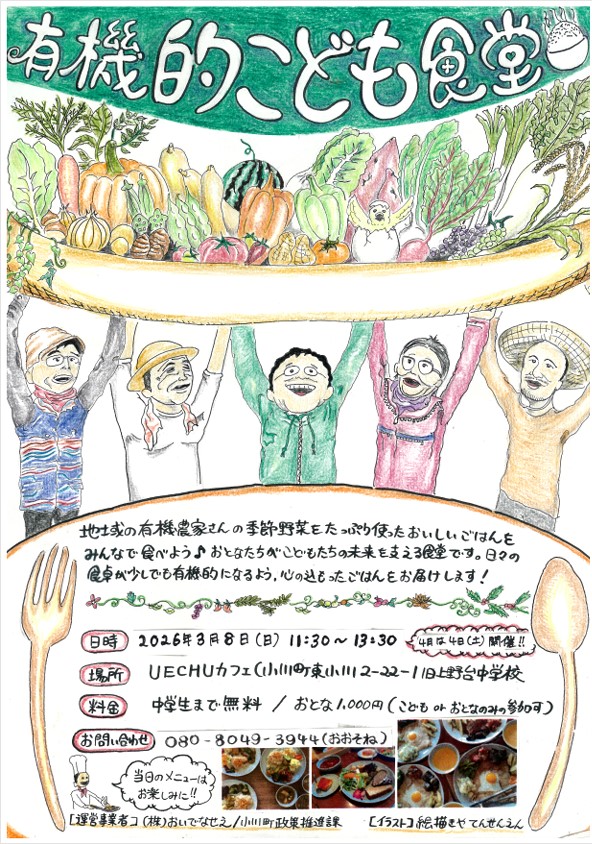 有機的こども食堂
地域の有機農家さんの季節野菜をたっぷり使ったおいしいごはんを
みんなで食べよう♪ おとなたちがこどもたちの未来を支える食堂です。日々の
食卓が少しでも有機的になるよう、心の込もったごはんをお届けします!
日時 2026年3月8日(日) 11:30〜13:30 4月は4日(土)開催!!
場所 UECHUカフェ(小川町東小川2-22-1旧上野台中学校
料金 中学生まで無料 / おとな1,000円(こども or おとなのみの参加可)
お問い合わせ 080-8049-3944(おおそね)
当日のメニューは
お楽しみに!!
[運営事業者] (株)おいでなせえ/小川町政策推進課 [イラスト] 絵描きや てんせんえん